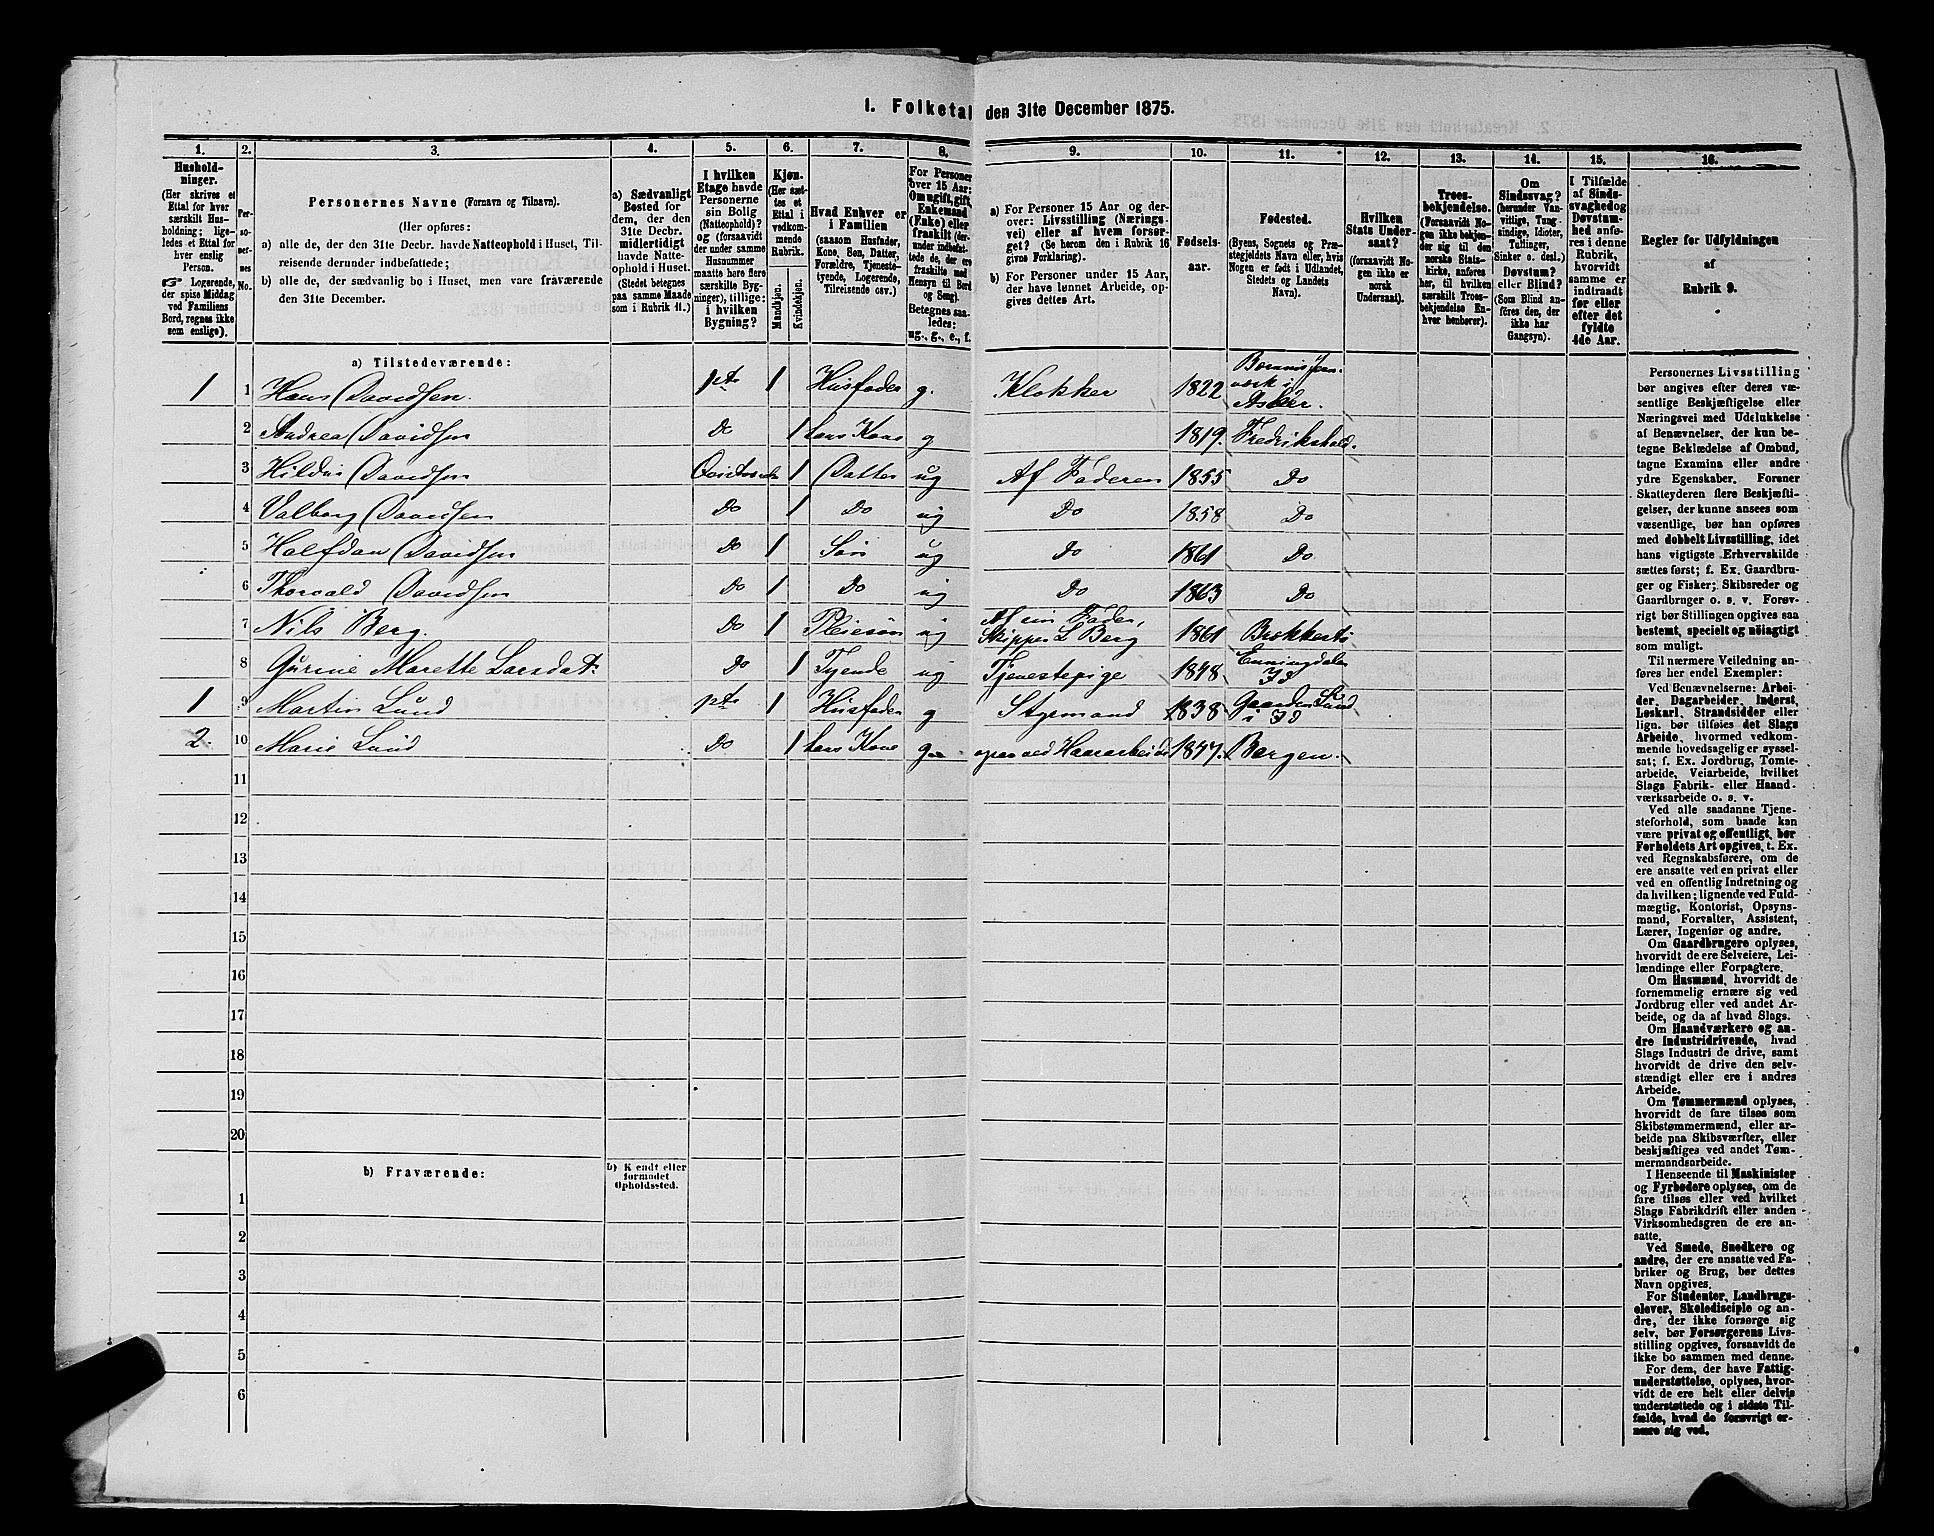 1. Folketal den 31te December 1875.
1. 2. 3. 4. 5. 6. 7. 8. 9. 10. 11. 12. 13. 14. 15. 16.
Hushold-
ninger.
(Her skrives et
Ettal for hver
særskilt Hus-
holdning; lige-
ledes et Ettal for
hver enslig
Person.
Logerende,
der spise Middag
ved Familiens
Bord, regnes ikke
som enslige).
Per-
so-
ner-
nes
No.
Personernes Navne (Fornavn og Tilnavn).
(Her opføres:
a) alle de, der den 31te Decbr. havde Natteophold i Huset, Til-
reisende derunder indbefattede;
b) alle de, der sædvanlig bo i Huset, men vare fraværende
den 31te December.
a) Sædvanligt
Bosted for
dem, der den
31te Decbr.
midlertidigt
havde Natte-
ophold i Huset.
(Stedet betegnes
paa samme Maade
som i Rubrik 11.)
I hvilken
Etage havde
Personerne
sin Bolig
(Natteophold)?
og (forsaavidt
der under samme
Husnummer
maatte høre flere
særskilte Byg-
ninger), tillige:
i hvilken
Bygning?
Kjøn.
(Her sæt-
tes et
Ettal i
vedkom-
mende
Rubrik.
Mandkjøn.
Kvindekjøn.
Hvad Enhver er
i Familien
(saasom Husfader,
Kone, Søn, Datter,
Forældre, Tjeneste-
tyende, Logerende,
Tilreisende osv.)
For Personer
over 15 Aar:
Om ugift, gift,
Enkemand
(Enke) eller
fraskilt (der-
under indbefat-
tede de, der ere
fraskilte med
Hensyn til Bord
og Seng).
Betegnes saa-
ledes:
ug., g., e., f.
a) For Personer 15 Aar og der-
over: Livsstilling (Nærings-
vei) eller af hvem forsør-
get? (Se herom den i Rubrik 16
gives Forklaring).
b) For Personer under 15 Aar,
der have lønnet Arbeide, op-
gives dettes Art.
Fødsels-
aar.
Fødested.
(Byens, Sognets og Præ-
stegjeldets Navn eller, hvis
Nogen er født i Udlandet,
Stedets og Landets
Navn).
Hvilken
Stats Under-
saat?
(forsaavidt No-
gen ikke er
norsk
Undersaat).
Troes-
bekjendelse.
(Forsaavidt No-
gen ikke bekjen-
der sig til den
norske Stats-
kirke, anføres
her, til hvilken
særskilt Troes-
bekjendelse En-
hver henhører).
Om
Sindssvag?
(herunder Van-
vittige, Tung-
sindige, Idioter,
Tullinger,
Sinker o. desl.)
Døvstum?
eller Blind?
(Som Blind an-
føres den, der
ikke har
Gangsyn).
I Tilfælde
af Sinds-
svaghed og
Døvstum-
hed anfø-
res i denne
Rubrik,
hvorvidt
samme er
indtraadt
før eller
efter det
fyldte
4de Aar.
Regler for Udfyldningen
af
Rubrik 9.
a) Tilstedeværende:
1 1 Hans Davidsen. 1ste 1 Husfader g. Klokker 1822 Asker.
2 Andrea Davidsen Do 1 hans Kone g 1819. Fredrikshald.
3 Hilda Davidsen 1 Datter ug Af Faderen 1855 Do
4 Valborg Davidsen Do 1 Do ug Do 1858 Do
5 Halfdan Davidsen Do 1 Søn ug Do 1861 Do
6 Thorvald Davidsen Do 1 Do ug Do 1863 Do
7 Nils Berg. Do 1 Pleiesøn ug Af sin Fader,
Skipper L Berg 1861
8 Gurine Marette Larsdat: Do 1 Tyende ug Tjenestepige 1848 Enningdalen
Id
1 9 Martin Lund 1ste 1 Husfader g Styrmand 1838 Gaarden Lund
i Id
2. 10 Marie Lund Do 1 hans Kone g Haararbeide 1847. Bergen.
11
12
13
14
15
16
17
18
19
20
b) Fraværende:
b) Kjendt eller
formodet
Opholdssted.
1
2
3
4
5
6
Personernes Livsstilling
bør angives efter deres væ-
sentlige Beskjæftigelse eller
Næringsvei med Udelukkelse
af Benævnelser, der kun be-
tegne Beklædelse af Ombud,
tagne Examina eller andre
ydre Egenskaber. Forener
Skatteyderen flere Beskjæfti-
gelser, der kunne ansees som
væsentlige, bør han opføres
med dobbelt Livsstilling, idet
hans vigtigste Erhvervskilde
sættes først; f. Ex. Gaardbru-
ger og Fisker; Skibsreder og
Gaardbruger o. s. v. Forøv-
rigt bør Stillingen opgives saa
bestemt, specielt og nøiagtigt
som muligt.
Til nærmere Veiledning an-
føres her endel Exempler:
Ved Benævnelserne: Arbei-
der, Dagarbeider, Inderst,
Løskarl, Strandsidder eller
lign. bør tilføies det Slags
Arbeide, hvormed vedkom-
mende hovedsagelig er syssel-
sat; f. Ex. Jordbrug, Tomte-
arbeide, Veiarbeide, hvilket
Slags Fabrik- eller Haand-
værksarbeide o. s. v.
Ved alle saadanne Tjene-
steforhold, som baade kan
være privat og offentligt, bør
Forholdets Art opgives, t. Ex.
ved Regnskabsførere, om de
ere ansatte ved en privat eller
ved en offentlig Indretning og
da hvilken; lignende ved Fuld-
mægtig, Kontorist, Opsyns-
mand, Forvalter, Assistent,
Lærer, Ingeniør og andre.
Om Gaardbrugere oplyses,
hvorvidt de ere Selveiere, Lei-
lændinge eller Forpagtere.
Om Husmænd, hvorvidt de
fornemmelig ernære sig ved
Jordbrug eller ved andet Ar-
beide, og da af hvad Slags.
Om Haandværkere og an-
dre Industridrivende, hvad
Slags Industri de drive, samt
hvorvidt de drive den selv-
stændigt eller ere i andres
Arbeide.
Om Tømmermænd oplyses,
hvorvidt de fare tilsøs som
Skibstømmermænd, eller ar-
beide paa Skibsværfter, eller
beskjæftiges ved andet Tøm-
mermandsarbeide.
I Henseende til Maskinister
og Fyrbødere oplyses, om de
fare tilsøs eller ved hvilket
Slags Fabrikdrift eller anden
Virksomhedsgren de ere an-
satte.
Ved Smede, Snedkere og
andre, der ere ansatte ved Fa-
briker og Brug, bør dettes
Navn opgives.
For Studenter, Landbrugs-
elever, Skoledisciple og an-
dre, der ikke forsørge sig
selv, bør Forsørgerens Livs-
stilling opgives, forsaavidt de
ikke bo sammen med denne.
For dem, der have Fattig-
understøttelse, oplyses, hvor-
vidt de ere helt eller delvis
understøttede og i sidste Til-
fælde, hvad de forøvrigt er-
nære sig ved.